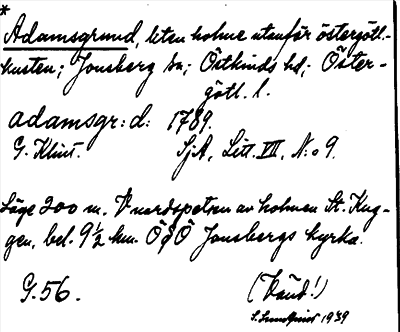 *
Adamsgrund, liten holme utanför östergötl.-
kusten; Jonsberg sn; Östkinds hd; Öster-
götl. l.
Adamsgr:d: 1789.
G. Klint. SjA, Litt. VII, N:o 9.
Läge 200 m. V nordspetsen av holmen St. Kug-
gen, bel. 9½ km. OSO Jonsbergs kyrka.
G.56. (Känd!)
1939